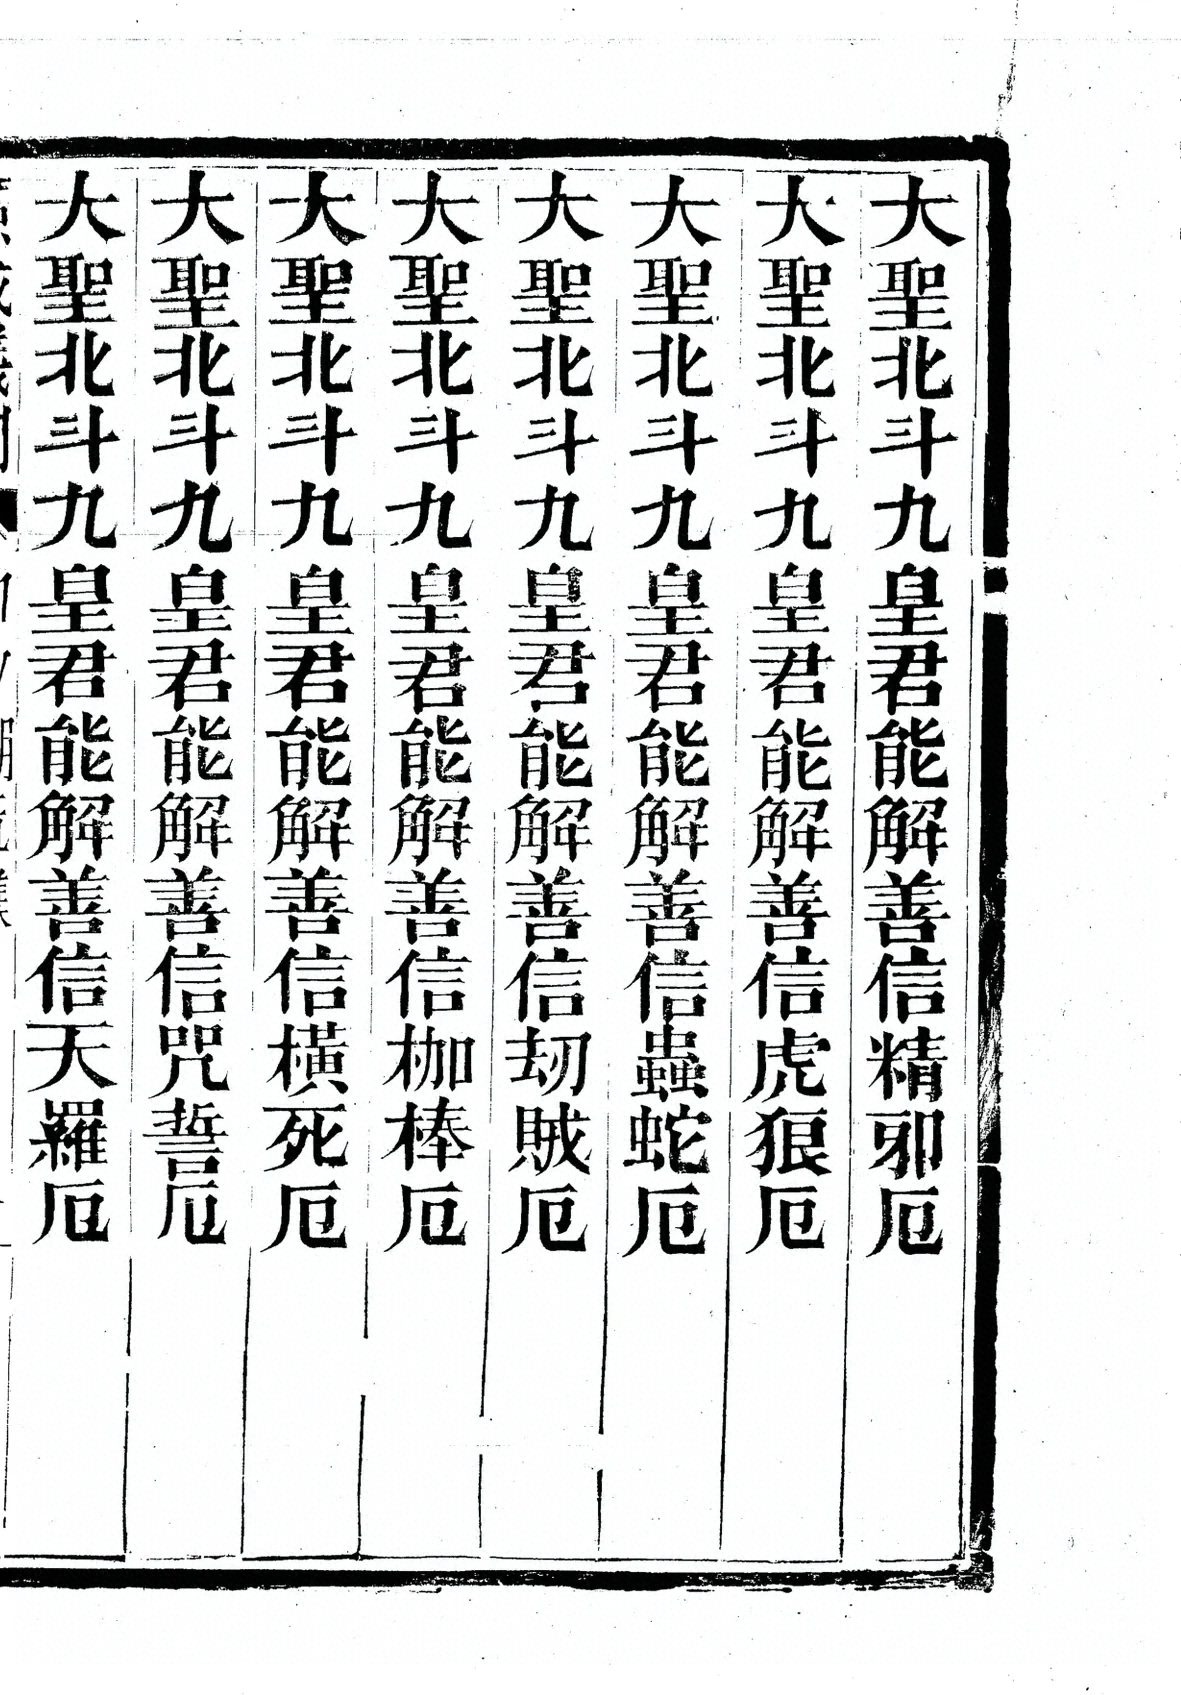 大聖北斗九皇君能解善信精邪厄
大聖北斗九皇君能解善信虎狼厄
大聖北斗九皇君能解善信蟲蛇厄
大聖北斗九皇君能解善信刼賊厄
大聖北斗九皇君能解善信枷棒厄
大聖北斗九皇君能解善信橫死厄
大聖北斗九皇君能解善信咒誓厄
大聖北斗九皇君能解善信天羅厄